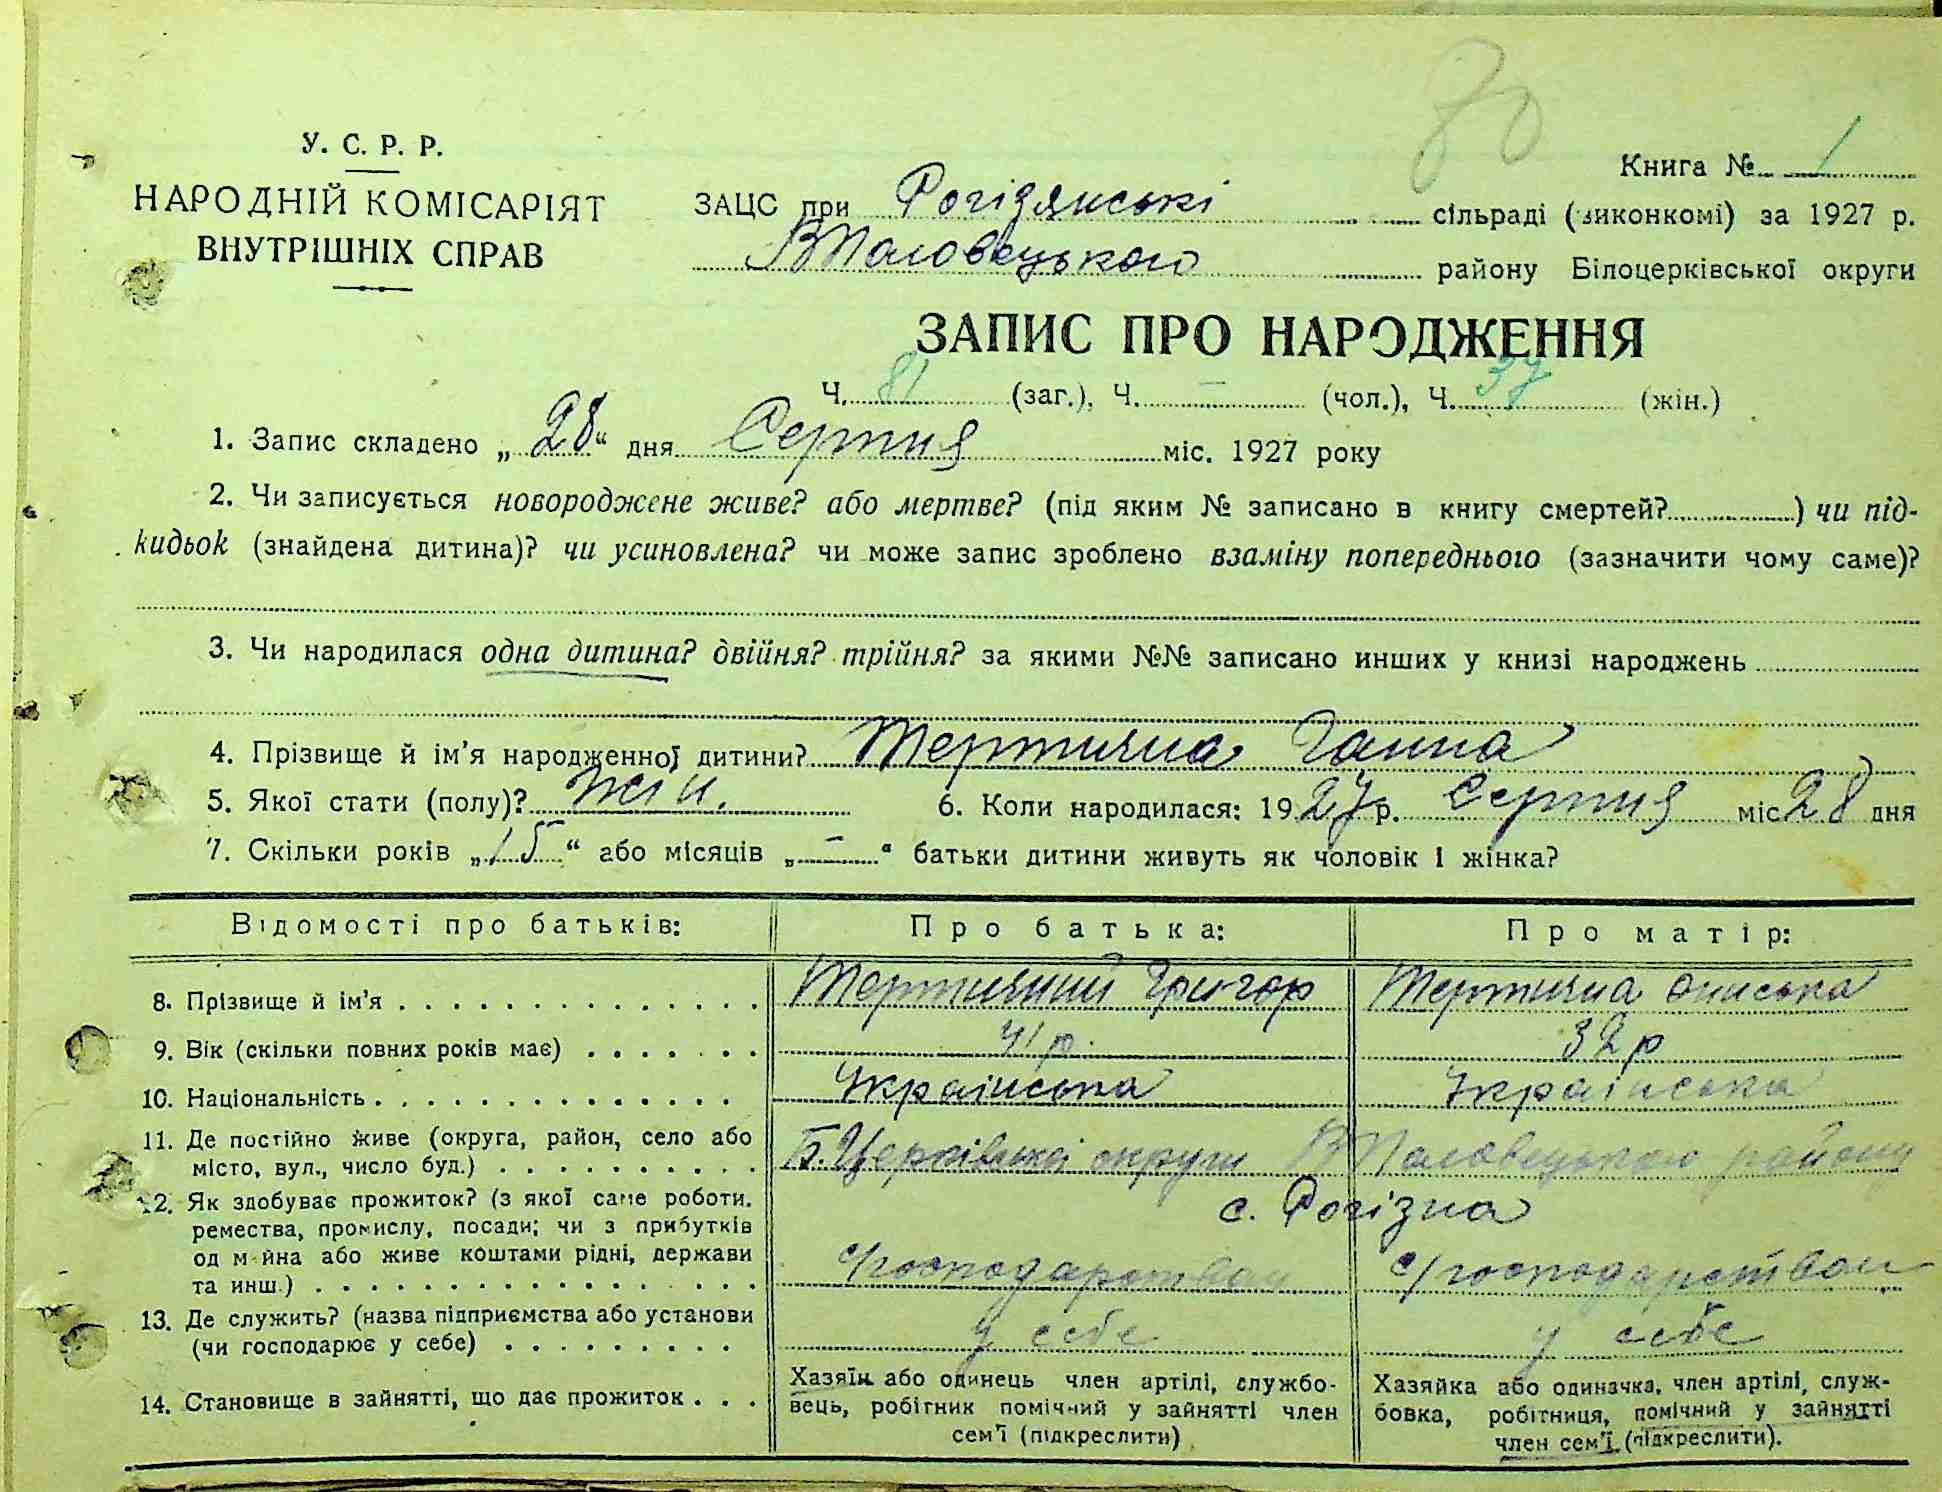 80
У. С. Р. Р.
НАРОДНІЙ КОМІСАРІЯТ
ВНУТРІШНІХ СПРАВ
Книга № 1
ЗАЦС при Рогізянські сільраді (виконкомі) за 1927 р.
ВПоловецького району Білоцерківської округи
ЗАПИС ПРО НАРОДЖЕННЯ
Ч. 81 (заг.), Ч. — (чол.), Ч. 37 (жін.)
1. Запис складено „28“ дня Серпня міс. 1927 року
2. Чи записується новороджене живе? або мертве? (під яким № записано в книгу смертей?) чи під-
кидьок (знайдена дитина)? чи усиновлена? чи може запис зроблено взаміну попереднього (зазначити чому саме)?
3. Чи народилася одна дитина? двійня? трійня? за якими №№ записано инших у книзі народжень
4. Прізвище й ім'я народженної дитини? Тертична Ганна
5. Якої стати (полу)? жін. 6. Коли народилася: 1927 р. Серпня міс 28 дня
7. Скільки років „15“ або місяців „—“ батьки дитини живуть як чоловік і жінка?
Відомості про батьків: Про батька: Про матір:
8. Прізвище й ім'я Тертичний Григор Тертична Ониська
9. Вік (скільки повних років має) 41 р. 32 р
10. Національність Українська Українська
11. Де постійно живе (округа, район, село або
місто, вул., число буд.) Б. Церківської округи ВПоловецького району
с. Рогізна
12. Як здобуває прожиток? (з якої саме роботи,
ремества, промислу, посади; чи з прибутків
од майна або живе коштами рідні, держави
та инш.) с/господарством с/господарством
13. Де служить? (назва підприємства або установи
(чи господарює у себе) у себе у себе
14. Становище в зайнятті, що дає прожиток
Хазяїн або одинець член артілі, службо-
вець, робітник помічний у зайнятті член
сем'ї (підкреслити)
Хазяйка або одиначка, член артілі, служ-
бовка, робітниця, помічний у зайнятті
член сем'ї (підкреслити).